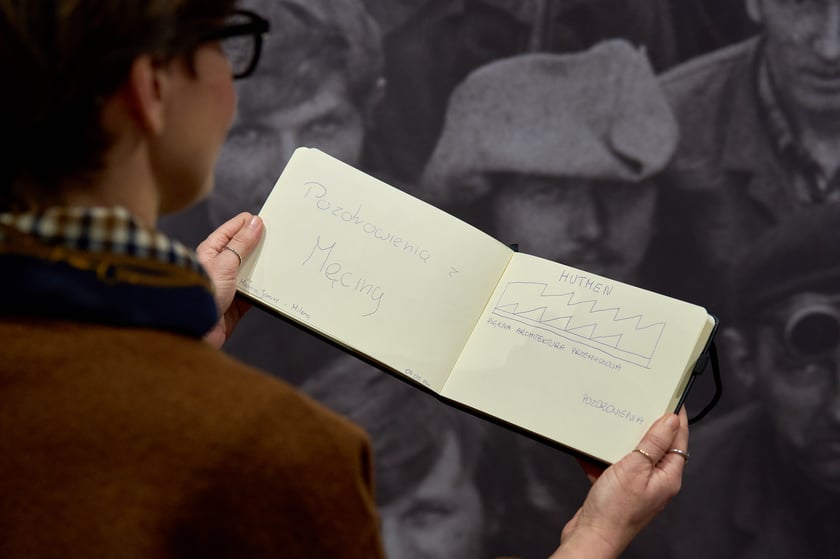 Pozdrowienia z
Męciny
Milena
HUTMEN
PIĘKNA ARCHITEKTURA PRZEMYSŁOWA
POZDROWIENIA